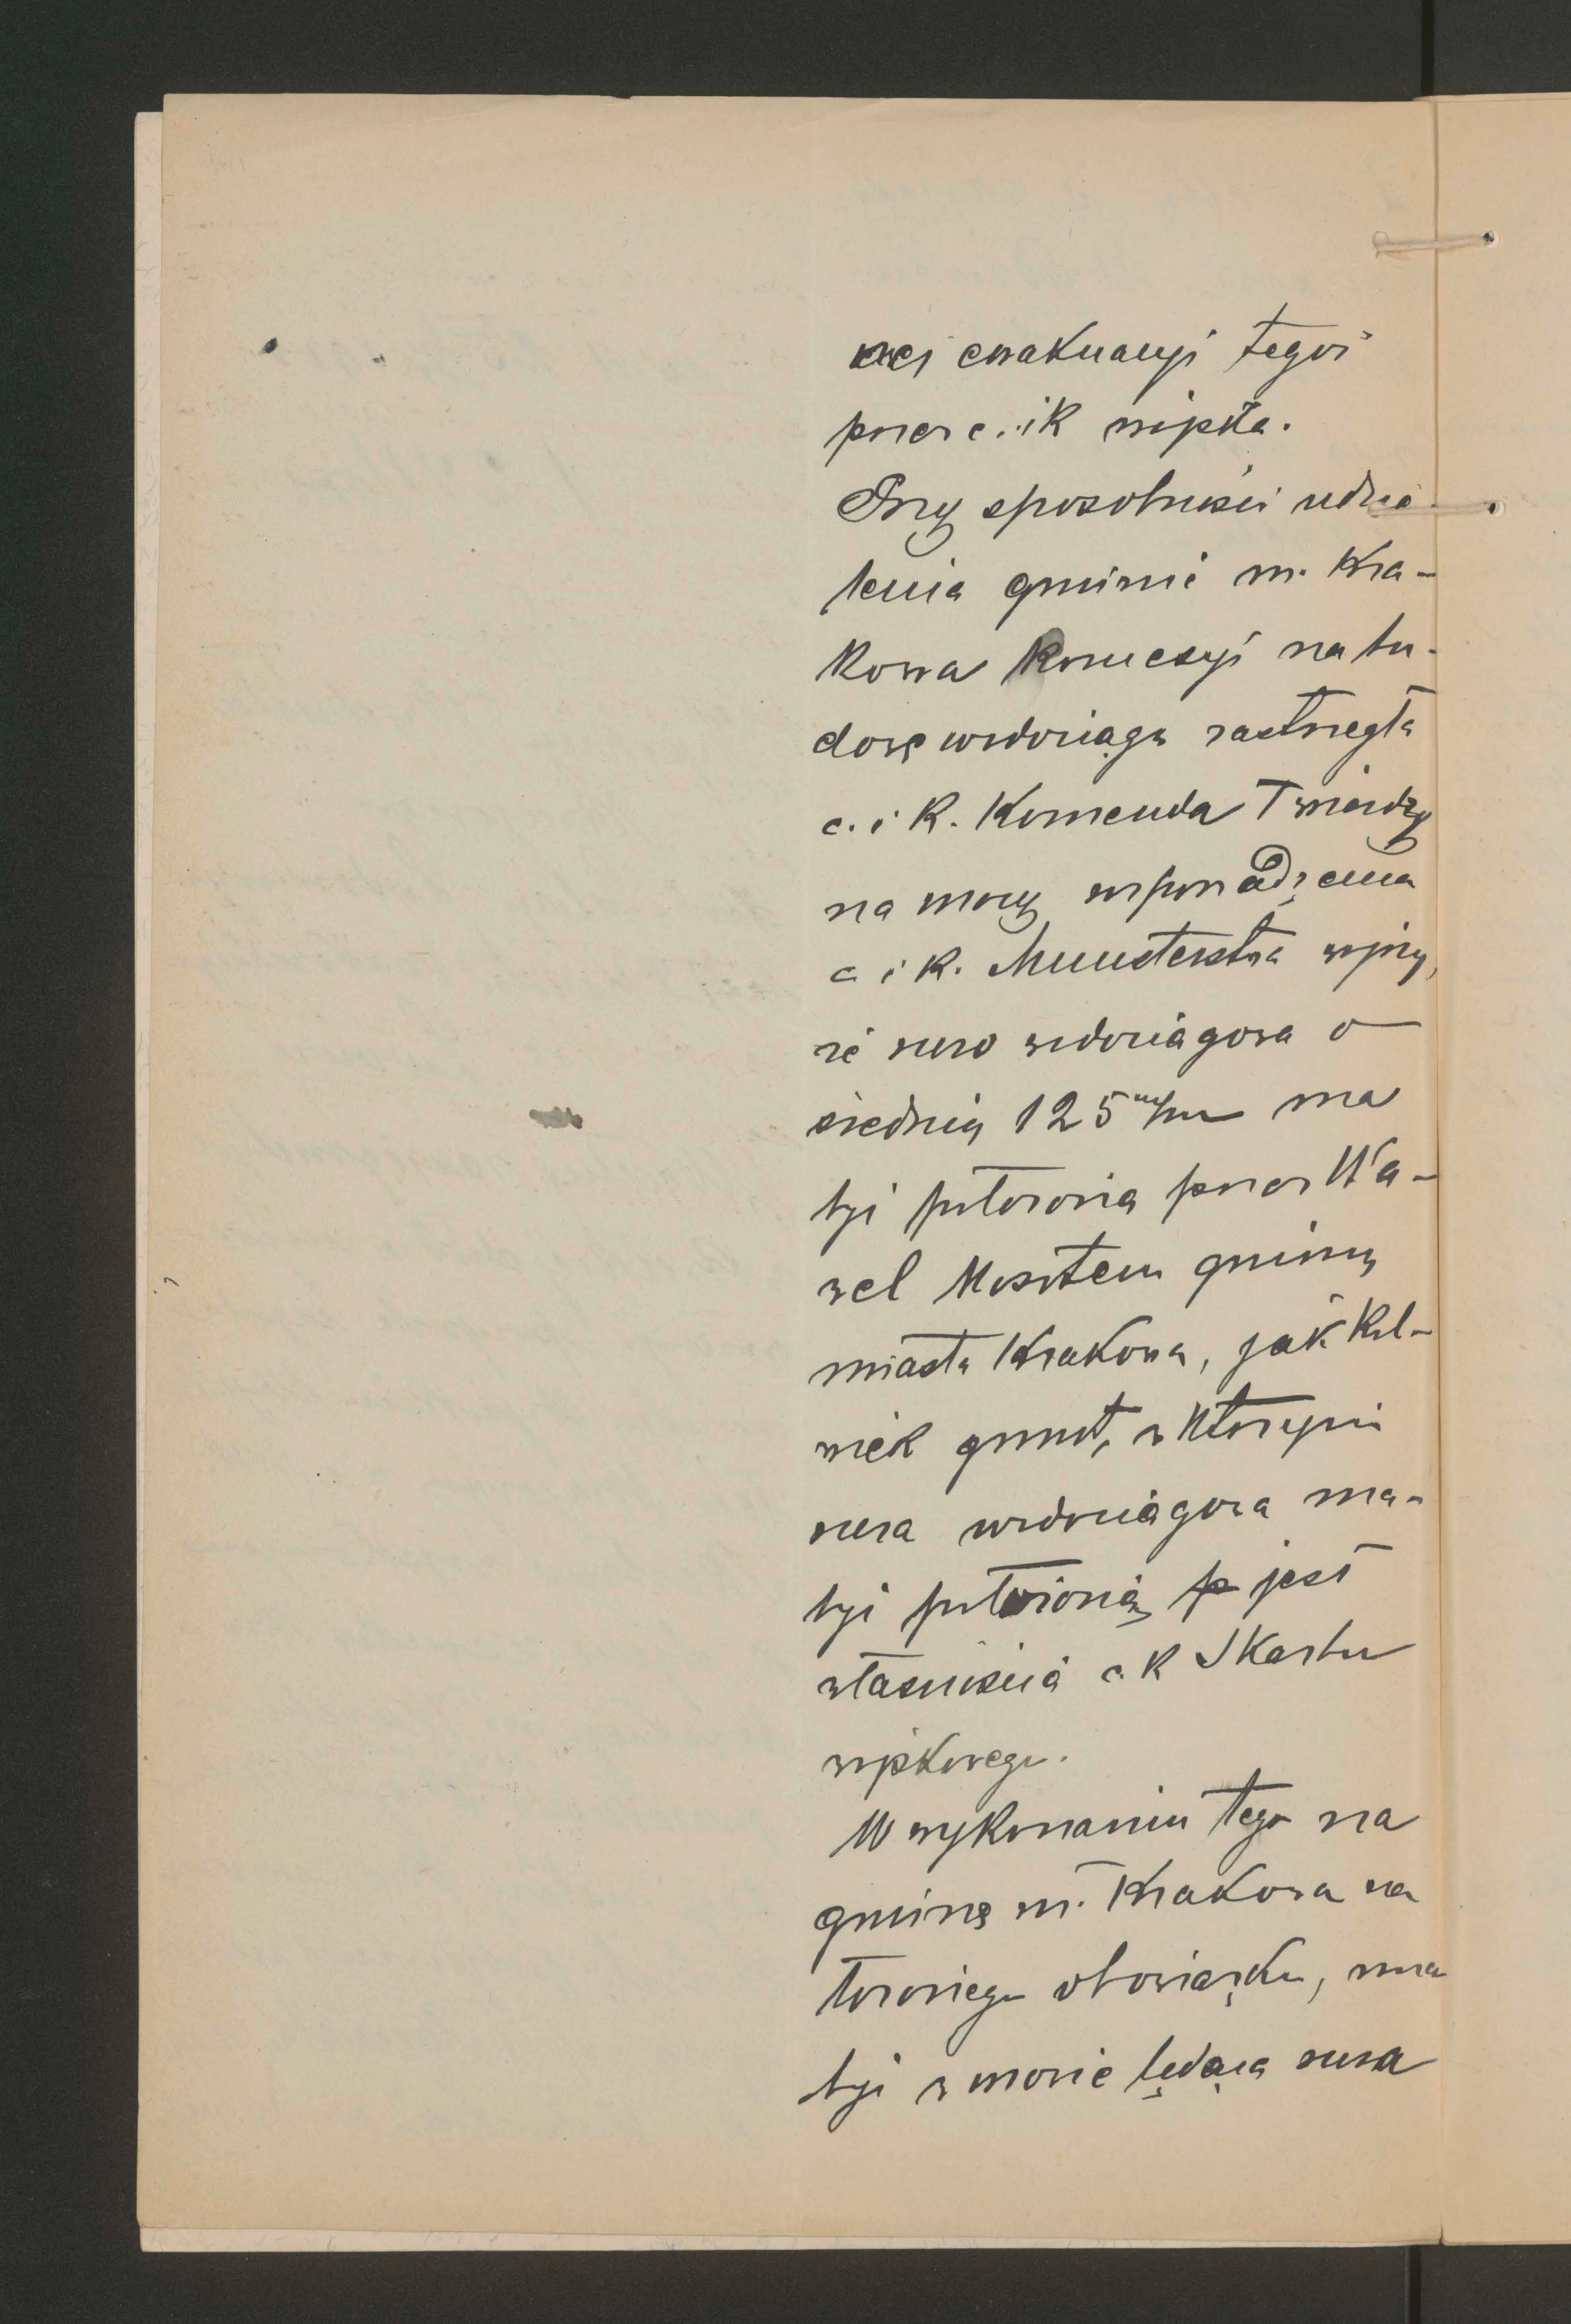 nej ewakuacyi tegoż
przez c. i k wojska.
Przy sposobności udzie-
lenia gminie m. Kra-
kowa koncesyi na bu-
dowę wodociągu zastrzegła
c. i k. Komenda Twierdzy
na mocy rozporządzenia
c i k. Ministerstwa wojny,
że rura wodociągowa o
średnicy 125 m/m ma
być położona przez Wa-
wel kosztem gminy
miasta Krakowa, jak kol-
wiek grunt, w którym
rura wodociągowa ma
być położoną jest
własnością c. k Skarbu
wojskowego.
W wykonaniu tego na
gminę m. Krakowa na
łożonego obowiązku, ma
być w mowie będąca rura